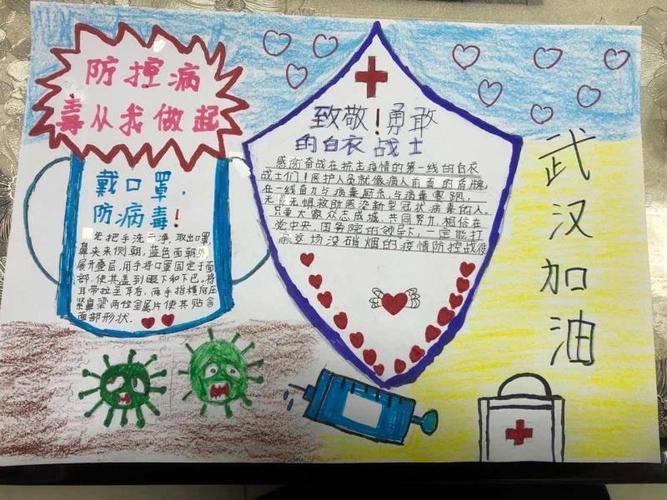 防控病
毒从我做起
戴口罩,
防病毒!
先把手洗干净,取出口罩
鼻夹来侧朝,蓝色面朝外
展开叠层,用手将口罩固定于面
部,使其盖到眼下和下巴,将
耳带拉至耳后,两手指横向压
紧鼻梁两位金属片使其贴合
面部形状.
致敬!勇敢
的白衣战士
感谢奋战在抗击疫情的第一线的白衣
战士们!医护人员就像病人前面的盾牌,
在一线奋力与病毒厮杀,与病毒赛跑,
无畏无惧救助感染新型冠状病毒的人。
只要大家众志成城,共同努力,相信在
党中央,国务院的领导下,一定能打
赢这场没硝烟的疫情防控战役
武汉加油